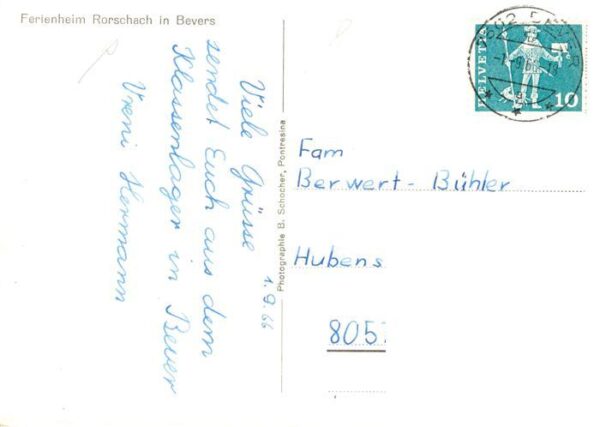 Ferienheim Rorschach in Bevers
Viele Grüsse
sendet Euch aus dem
Klassenlager in Bever
Vreni Hermann
1.9.66
Photographie B. Schocher, Pontresina
HELVETIA
10
Fam
Berwert-Bühler
Hubens
8057